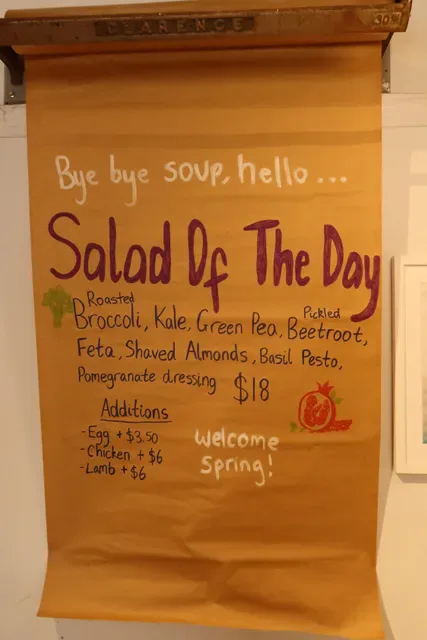 CLARENCE
30"
Bye bye soup, hello...
Salad Of The Day
Roasted Pickled
Broccoli, Kale, Green Pea, Beetroot,
Feta, Shaved Almonds, Basil Pesto,
Pomegranate dressing $18
Additions
- Egg + $3.50
- Chicken + $6
- Lamb + $6
Welcome
Spring!